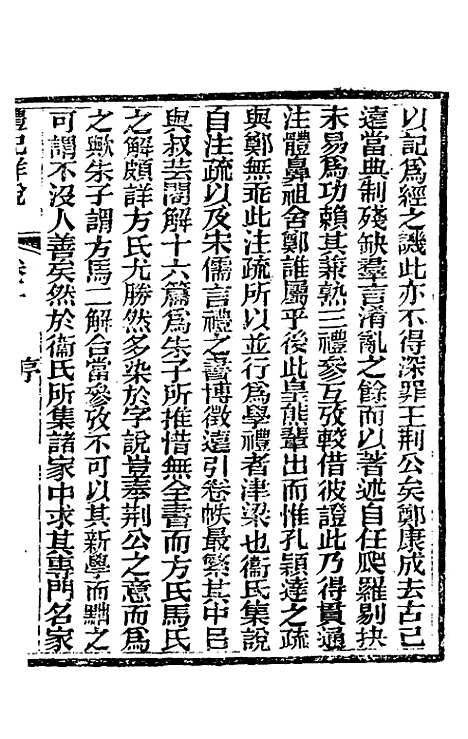 以記爲經之譏此亦不得深罪王荆公矣鄭康成去古已
遠當典制殘缺羣言淆亂之餘而以著述自任爬羅剔抉
未易爲功賴其兼熟三禮參互攷較借彼證此乃得貫通
注體鼻祖舍鄭誰屬乎後此皇熊輩出而惟孔頴達之疏
與鄭無乖此注疏所以並行爲學禮者津梁也衞氏集說
自注疏以及宋儒言禮之書博徵遠引卷帙最緐其中呂
與叔芸閣解十六篇爲朱子所推惜無全書而方氏馬氏
之解頗詳方氏尤勝然多染於字說豈奉荆公之意而爲
之歟朱子謂方馬二解合當參攷不可以其新學而黜之
可謂不没人善矣然於衞氏所集諸家中求其專門名家
禮記詳說 序